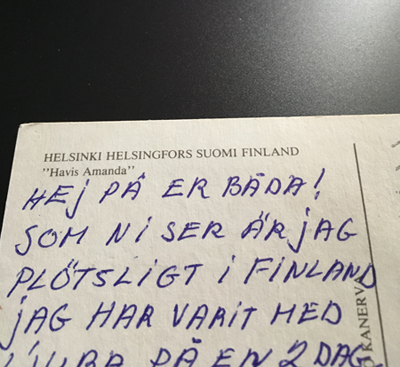 HELSINKI HELSINGFORS SUOMI FINLAND
"Havis Amanda"
HEJ PÅ ER BÅDA!
SOM NI SER ÄR JAG
PLÖTSLIGT I FINLAND
JAG HAR VARIT MED
PÅ EN 2 DAG
KANERVA